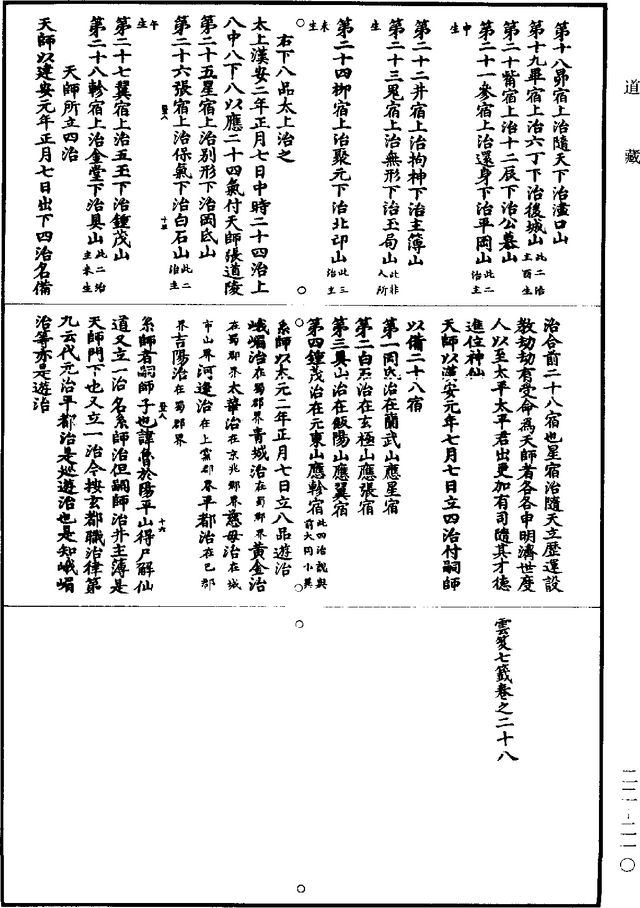 道藏
第十八昴宿上治隨天下治湓口山
第十九畢宿上治六丁下治後城山此二治主酉生
第二十觜宿上治十二辰下治公慕山
第二十一參宿上治還身下治平岡山此二治主
申生
第二十二井宿上治拘神下治主簿山
第二十三鬼宿上治無形下治玉局山此非人所
生
第二十四柳宿上治聚元下治北邙山此三治主
未生
右下八品太上治之
太上漢安二年正月七日中時二十四治上
八中八下八以應二十四氣付天師張道陵
第二十五星宿上治別形下治岡氐山
第二十六張宿上治保氣下治白石山此二治主
午生
第二十七翼宿上治五玉下治鍾茂山
第二十八軫宿上治金堂下治具山此二治主未生
天師所立四治
天師以建安元年正月七日出下四治名備
治合前二十八宿也星宿治隨天立歷運設
教劫劫有受命為天師者各各申明濟世度
人以至太平太平君出更加有司隨其才德
進位神仙
天師以漢安元年七月七日立四治付嗣師
以備二十八宿
第一岡氐治在蘭武山應星宿
第二白石治在玄極山應張宿
第三具山治在飯陽山應翼宿
第四鍾茂治在元東山應軫宿此四治說與前大同小異
系師以太元二年正月七日立八品遊治
峨嵋治在蜀郡界青城治在蜀郡界黃金治
在蜀郡界太華治在京兆郡界慈母治在城
市山界河逢治在上黨郡界平都治在巴郡
界吉陽治在蜀郡界
系師者嗣師子也諱魯於陽平山得尸解仙
道又立一治名系師治但嗣師治并主薄是
天師門下也又立一治今按玄都職治律第
九云代元治平都治是巡遊治也是知峨嵋
治等亦是遊治
雲笈七籤卷之二十八
二二-二一〇